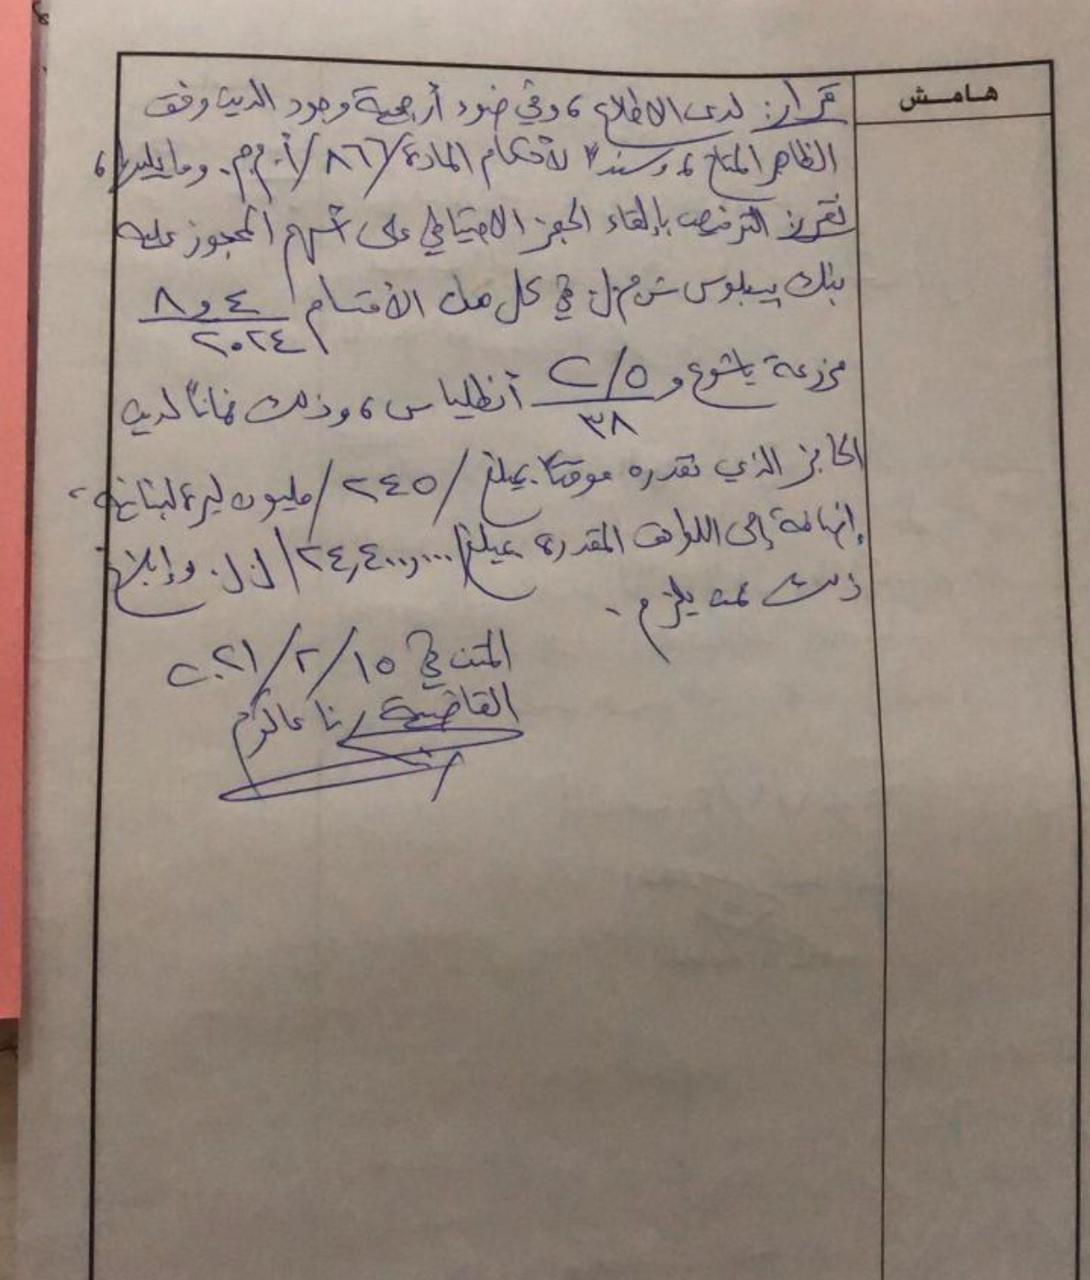 هامش
قرار: لدى الاطلاع، وفي ضوء أرجحية وجود الدين وفق
الظاهر المتاح، وسنداً لأحكام المادة /٨٦٦/ أ.م.م. وما يليها،
نقرر الترخيص بإلقاء الحجز الاحتياطي على أسهم المحجوز عليه
بنك بيبلوس ش.م.ل. في كل من الأقسام ٤ و ٨
٢٠٢٤
مزرعة يشوع و ٥/C
٣٨ أنطلياس، وذلك ضماناً لدين
الحاجز الذي نقدره موقتاً بمبلغ /٢٤٥/ مليون ليرة لبنانية،
إضافة إلى اللواحق المقدرة بمبلغ /٢٤,٤٠٠,٠٠٠/ ل.ل. وإبلاغ
ذلك ممن يلزم.
المتن في ١٥/٢/٢٠٢١
القاضية رنا عاكوم